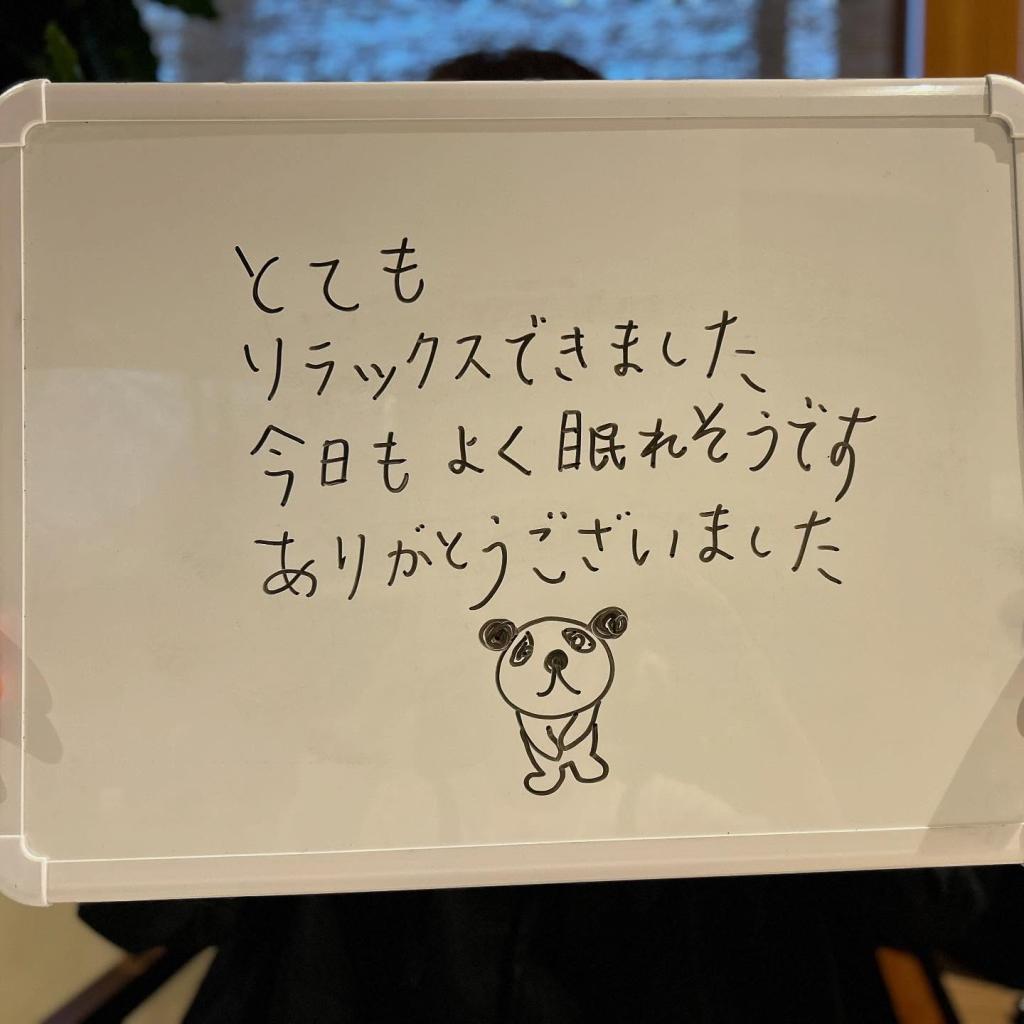 とても
リラックスできました
今日も よく眠れそうです
ありがとうございました